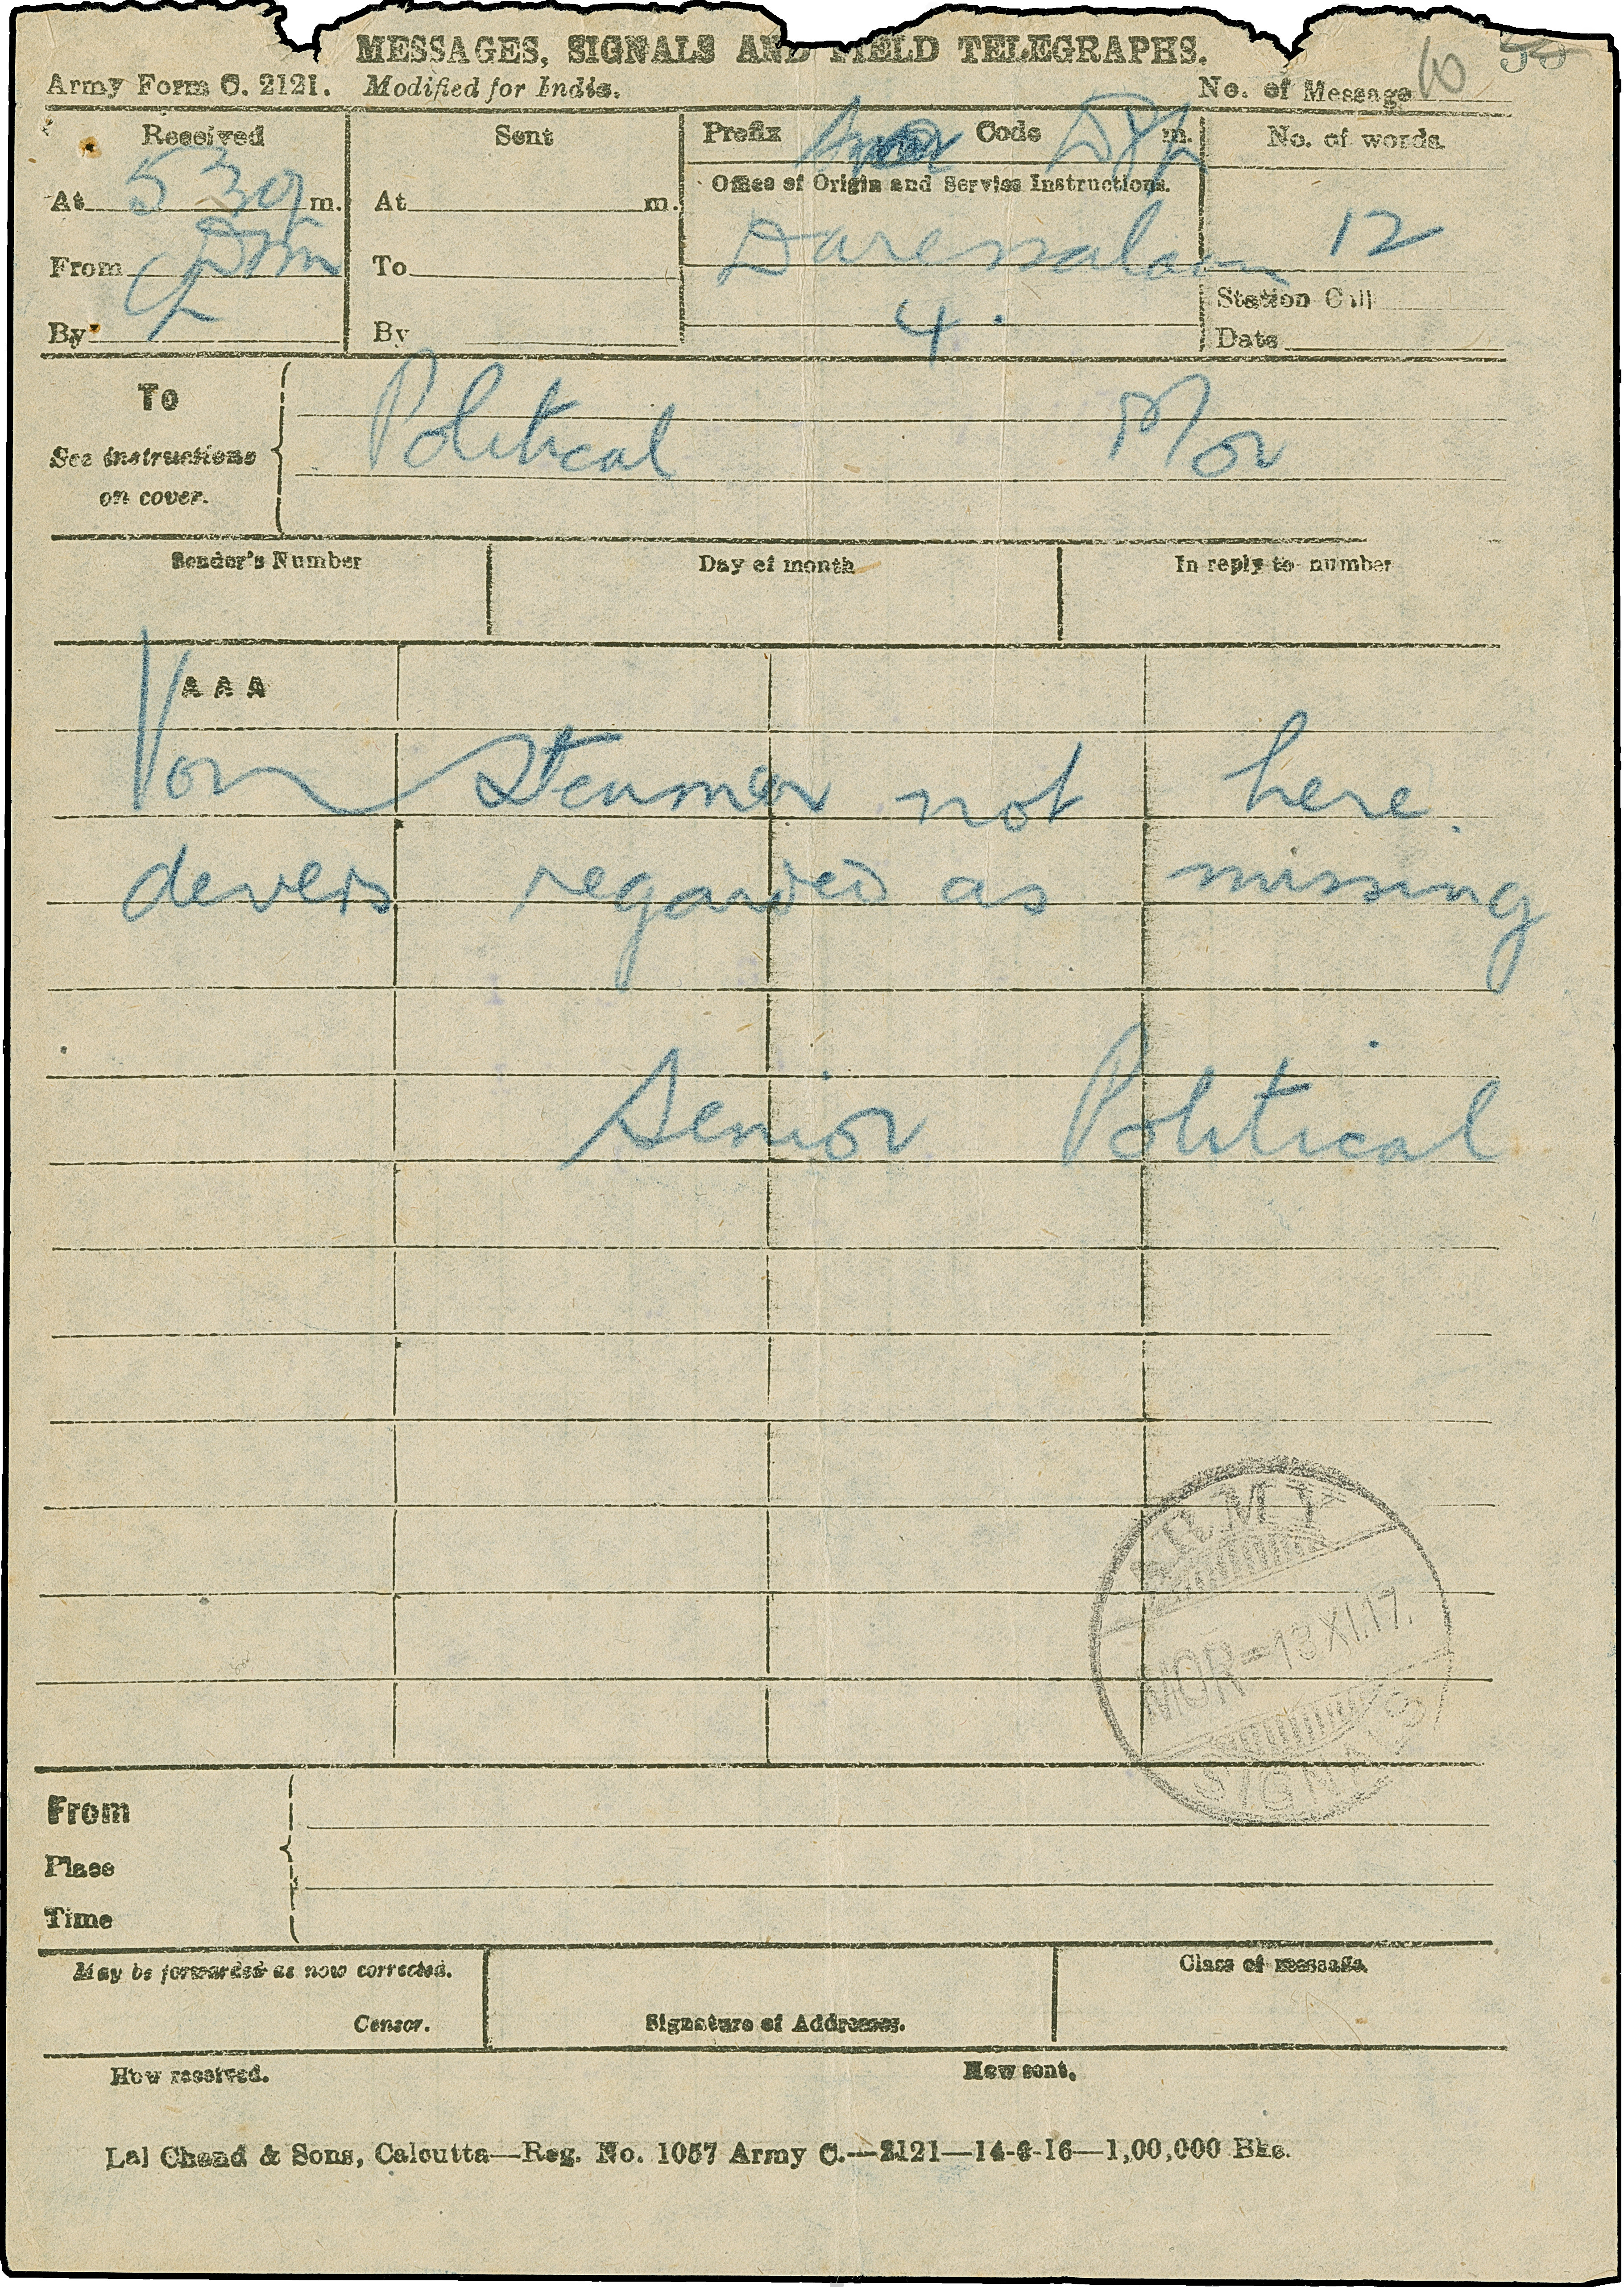 MESSAGES, SIGNALS AND FIELD TELEGRAPHS.
Army Form C. 2121. Modified for India. No. of Message 10
Received Sent Prefix Code m. No. of words.
At 5 30 m. At m. Office of Origin and Service Instructions.
Daressalaam 12
From To
Station Call
4.
By By Date
To Political Mor
See instructions
on cover.
Sender's Number Day of month In reply to number
A A A
Von Steumer not here.
devers regarded as missing
Senior Political
ARMY
MOR-13 XI.17.
SIGNALS
From
Place
Time
May be forwarded as now corrected. Class of message.
Censor. Signature of Addresses.
How received. How sent.
Lal Chand & Sons, Calcutta—Reg. No. 1057 Army C.—2121—14-6-16—1,00,000 Bks.